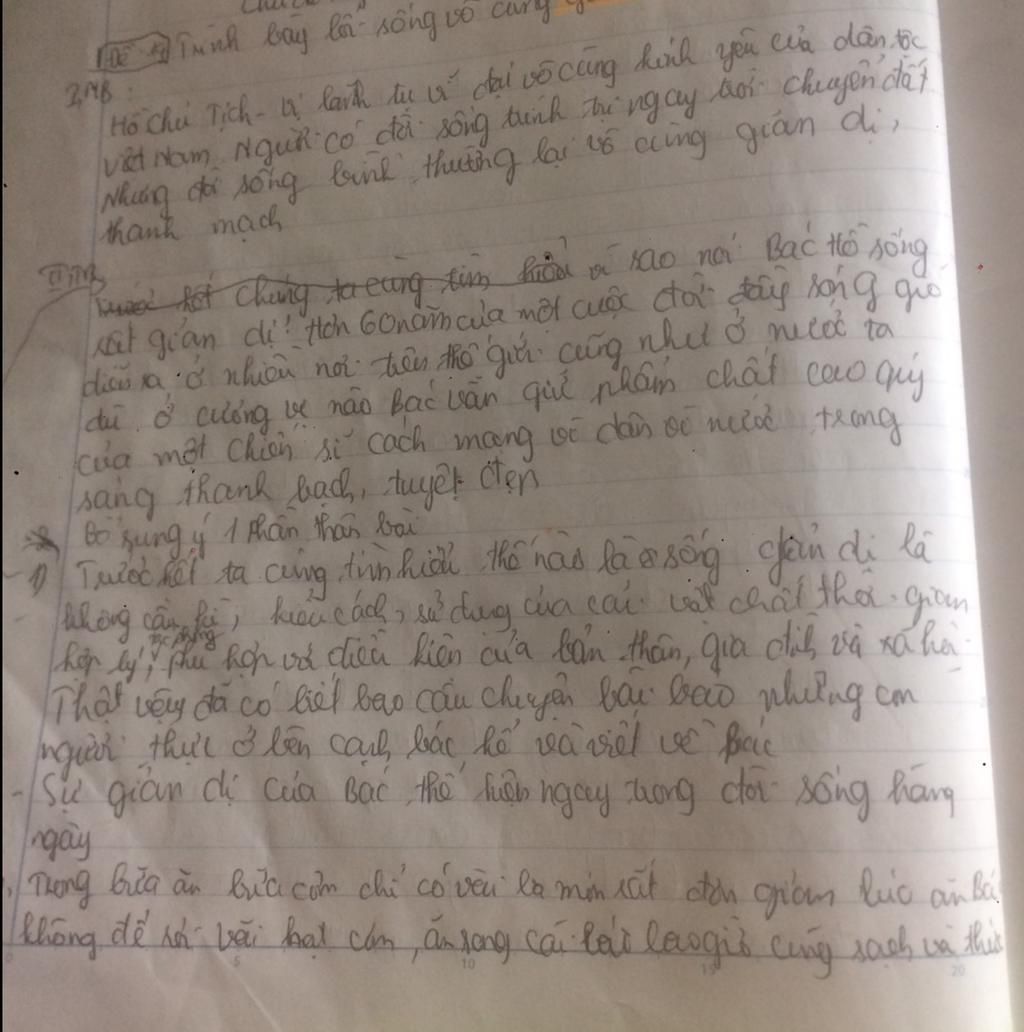 Đề Trình bày lối sống vô cùng
I, MB:
Hồ Chủ Tịch - Vị lãnh tụ vĩ đại vô cùng kính yêu của dân tộc
Việt Nam. Người có đời sống chính trị ngay trời chuyển đất
Nhưng đời sống bình thường lại vô cùng giản dị,
thanh mạch
II, TB
Trước hết chúng ta cùng tìm hiểu vì sao nói Bác Hồ sống
rất giản dị! Hơn 60 năm của một cuộc đời đầy sóng gió
diễn ra ở nhiều nơi trên thế giới cũng như ở nước ta
dù ở cương vị nào Bác vẫn giữ phẩm chất cao quý
của một chiến sĩ cách mạng vì dân vì nước trong
sáng thanh bạch, tuyệt đẹp
Bổ sung ý 1 phần thân bài
1) Trước hết ta cùng tìm hiểu thế nào là sống giản dị là
không cầu kì, kiểu cách, sử dụng của cải vật chất thời gian
hợp lý, phù hợp với điều kiện của bản thân, gia đình và xã hội
Thật vậy đã có biết bao câu chuyện bài báo những con
người thực ở bên cạnh bác hồ và viết về Bác
- Sự giản dị của Bác thể hiện ngay trong đời sống hàng
ngày
Trong bữa ăn bữa cơm chỉ có vài ba món rất đơn giản lúc ăn Bá
không để rơi vãi hạt cơm, ăn song cái bát bao giờ cũng sạch và thức
5 10 15 20